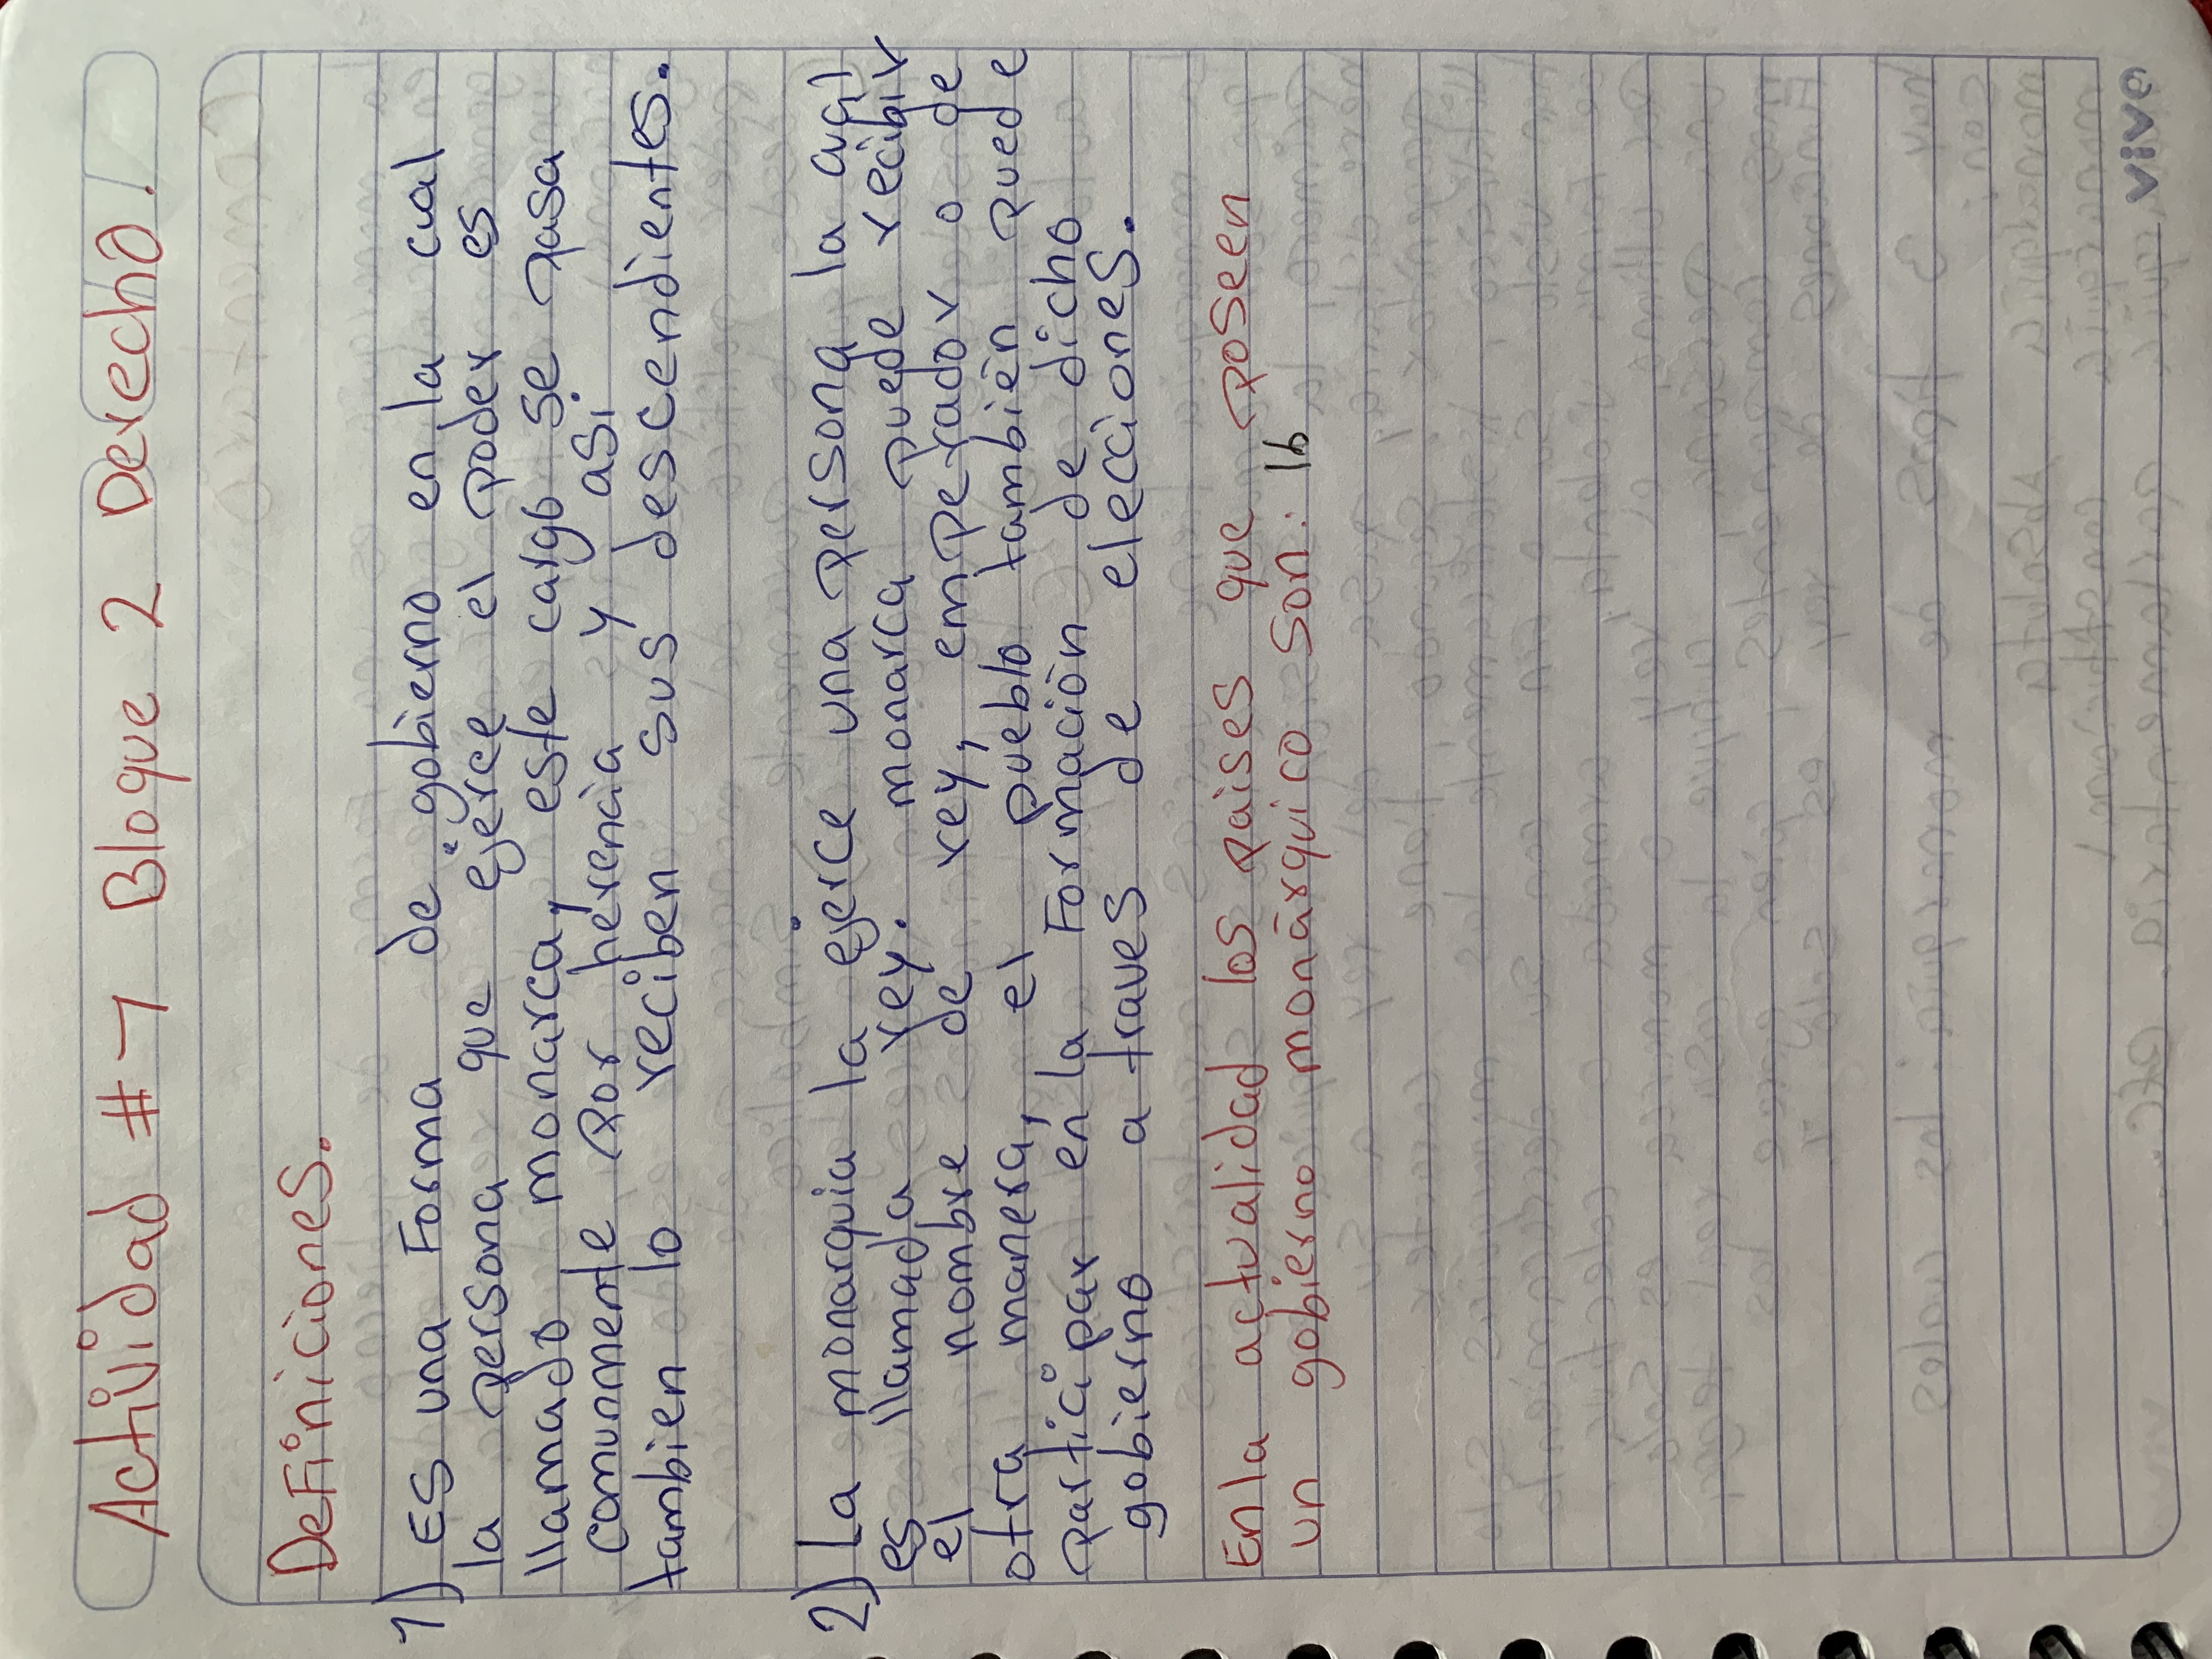 Actividad #7 Bloque 2 Derecho.
Definiciones.
1) Es una Forma de gobierno en la cual
la persona que ejerce el poder es
llamado monarca, este cargo se pasa
comunmente por herencia y asi
tambien lo reciben sus descendientes.
2) La monarquia la ejerce una persona la cual
es llamada rey. monarca puede recibir
el nombre de rey, emperador o de
otra manera, el pueblo también puede
participar en la Formación de dicho
gobierno a traves de elecciones.
En la actualidad los paises que poseen
un gobierno monárquico son: 16
viva